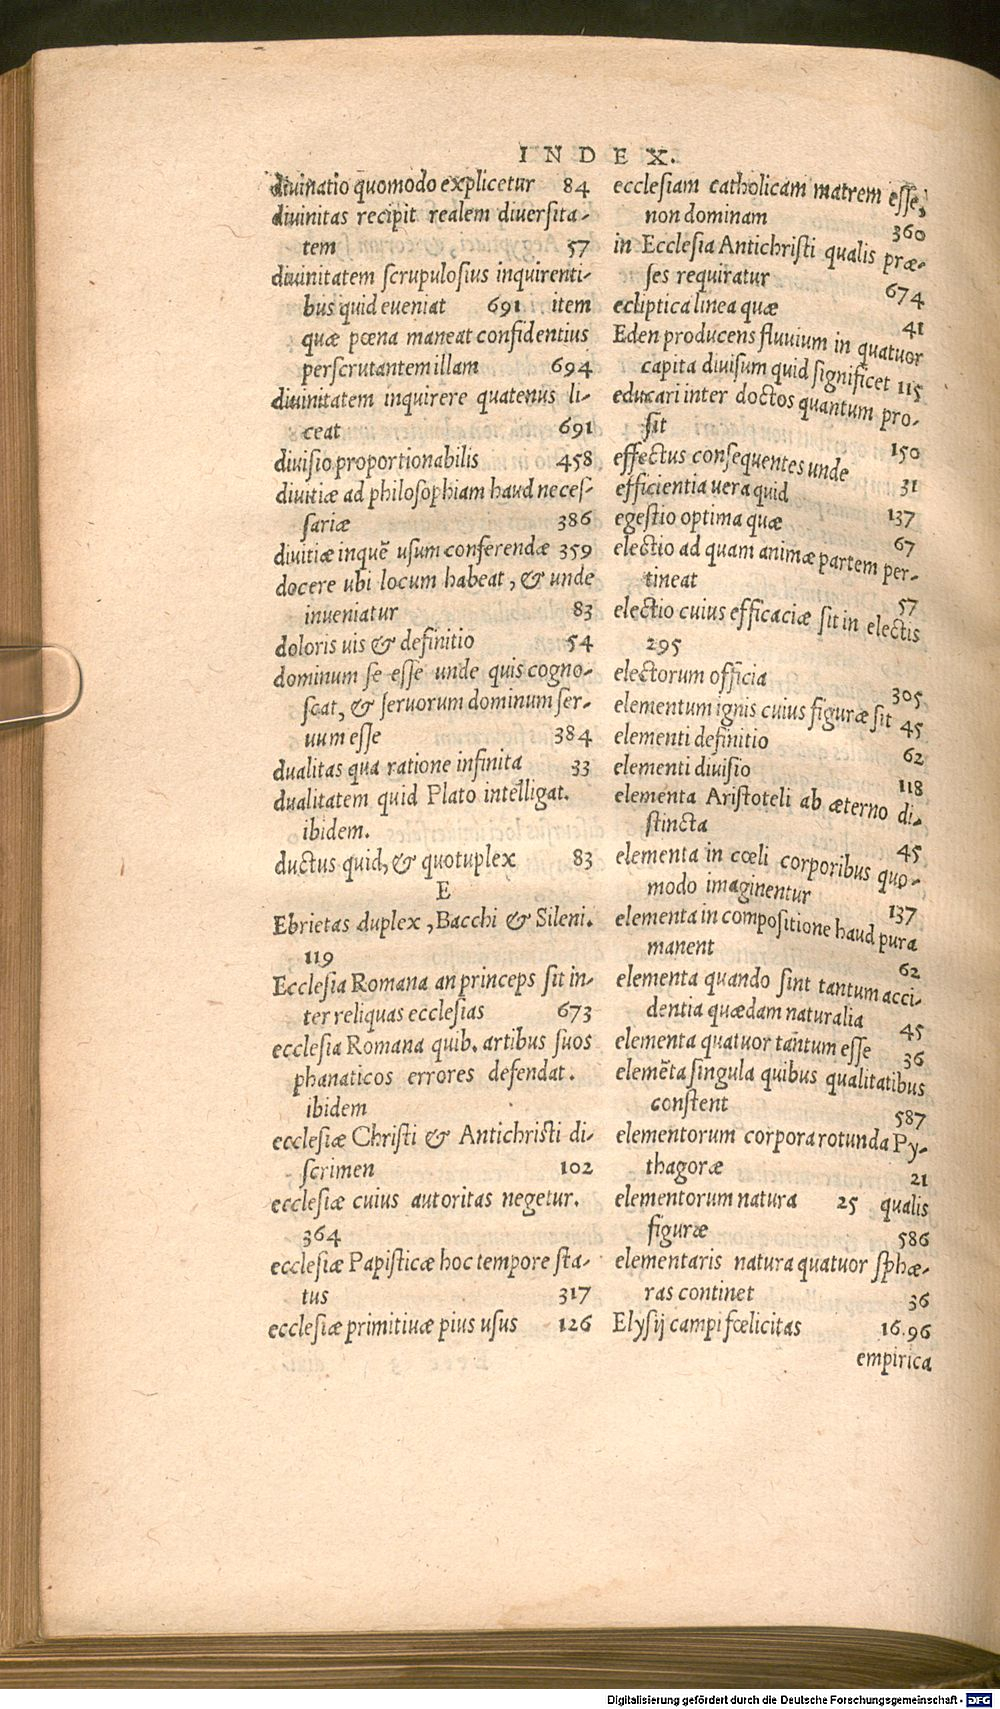 INDEX.
diuinatio quomodo explicetur 84
diuinitas recipit realem diuersita-
tem 57
diuinitatem scrupulosius inquirenti-
bus quid eueniat 691 item
quæ pœna maneat confidentius
perscrutantem illam 694
diuinitatem inquirere quatenus li-
ceat 691
diuisio proportionabilis 458
diuitiæ ad philosophiam haud neces-
sariæ 386
diuitiæ inquẽ usum conferendæ 359
docere ubi locum habeat, & unde
inueniatur 83
doloris uis & definitio 54
dominum se esse unde quis cogno-
scat, & seruorum dominum ser-
uum esse 384
dualitas qua ratione infinita 33
dualitatem quid Plato intelligat.
ibidem.
ductus quid, & quotuplex 83
E
Ebrietas duplex, Bacchi & Sileni.
119
Ecclesia Romana an princeps sit in-
ter reliquas ecclesias 673
ecclesia Romana quib. artibus suos
phanaticos errores defendat.
ibidem
ecclesiæ Christi & Antichristi di-
scrimen 102
ecclesiæ cuius autoritas negetur.
364
ecclesiæ Papisticæ hoc tempore sta-
tus 317
ecclesiæ primitiuæ pius usus 126
ecclesiam catholicam matrem esse,
non dominam 360
in Ecclesia Antichristi qualis præ-
ses requiratur 674
ecliptica linea quæ 41
Eden producens fluuium in quatuor
capita diuisum quid significet 115
educari inter doctos quantum pro-
sit 150
effectus consequentes unde 31
efficientia uera quid 137
egestio optima quæ 67
electio ad quam animæ partem per-
tineat 57
electio cuius efficaciæ sit in electis
295
electorum officia 305
elementum ignis cuius figuræ sit 45
elementi definitio 62
elementi diuisio 118
elementa Aristoteli ab æterno di-
stincta 45
elementa in cœli corporibus quo-
modo imaginentur 137
elementa in compositione haud pura
manent 62
elementa quando sint tantum acci-
dentia quædam naturalia 45
elementa quatuor tantum esse 36
elemẽta singula quibus qualitatibus
constent 587
elementorum corpora rotunda Py-
thagoræ 21
elementorum natura 25 qualis
figuræ 586
elementaris natura quatuor sphæ-
ras continet 36
Elysij campi fœlicitas 16.96
empirica
Digitalisierung gefördert durch die Deutsche Forschungsgemeinschaft - DFG